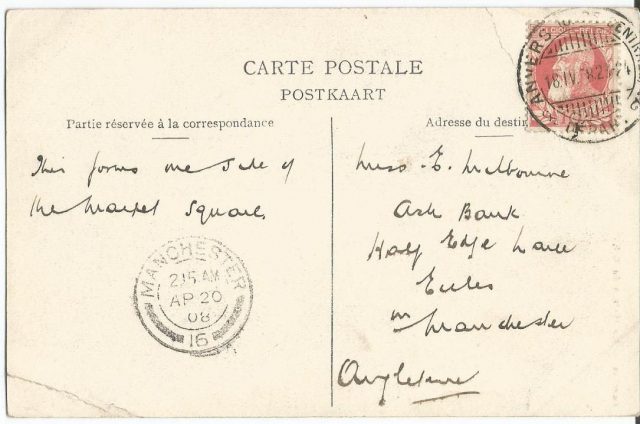 CARTE POSTALE
POSTKAART
Partie réservée à la correspondance
Adresse du destin
This forms one side of
the Market Square.
Miss E. Melbourne
Ash Bank
Half Edge Lane
Eccles
nr Manchester
Angleterre
MANCHESTER
2.15 AM
AP 20
08
16
ANVERS
DÉPART